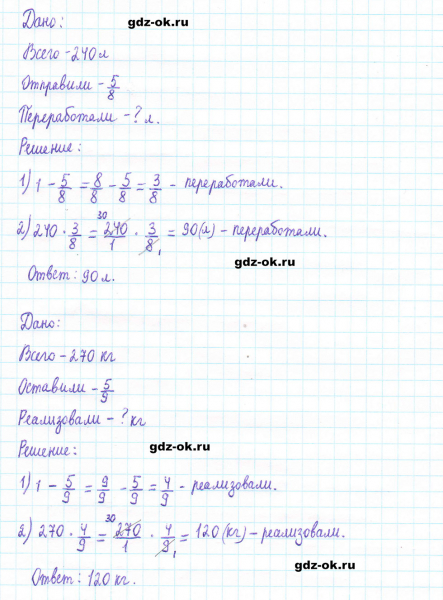 Дано:
gdz-ok.ru
Всего - 240 л
Отправили - 5/8
Переработали - ? л.
Решение:
1) 1 - 5/8 = 8/8 - 5/8 = 3/8 - переработали.
2) 240 · 3/8 = 240/1 30 · 3/8 1 = 90 (л) - переработали.
gdz-ok.ru
Ответ: 90 л.
Дано:
Всего - 270 кг
Оставили - 5/9
Реализовали - ? кг
gdz-ok.ru
Решение:
1) 1 - 5/9 = 9/9 - 5/9 = 4/9 - реализовали.
2) 270 · 4/9 = 270/1 30 · 4/9 1 = 120 (кг) - реализовали.
gdz-ok.ru
Ответ: 120 кг.